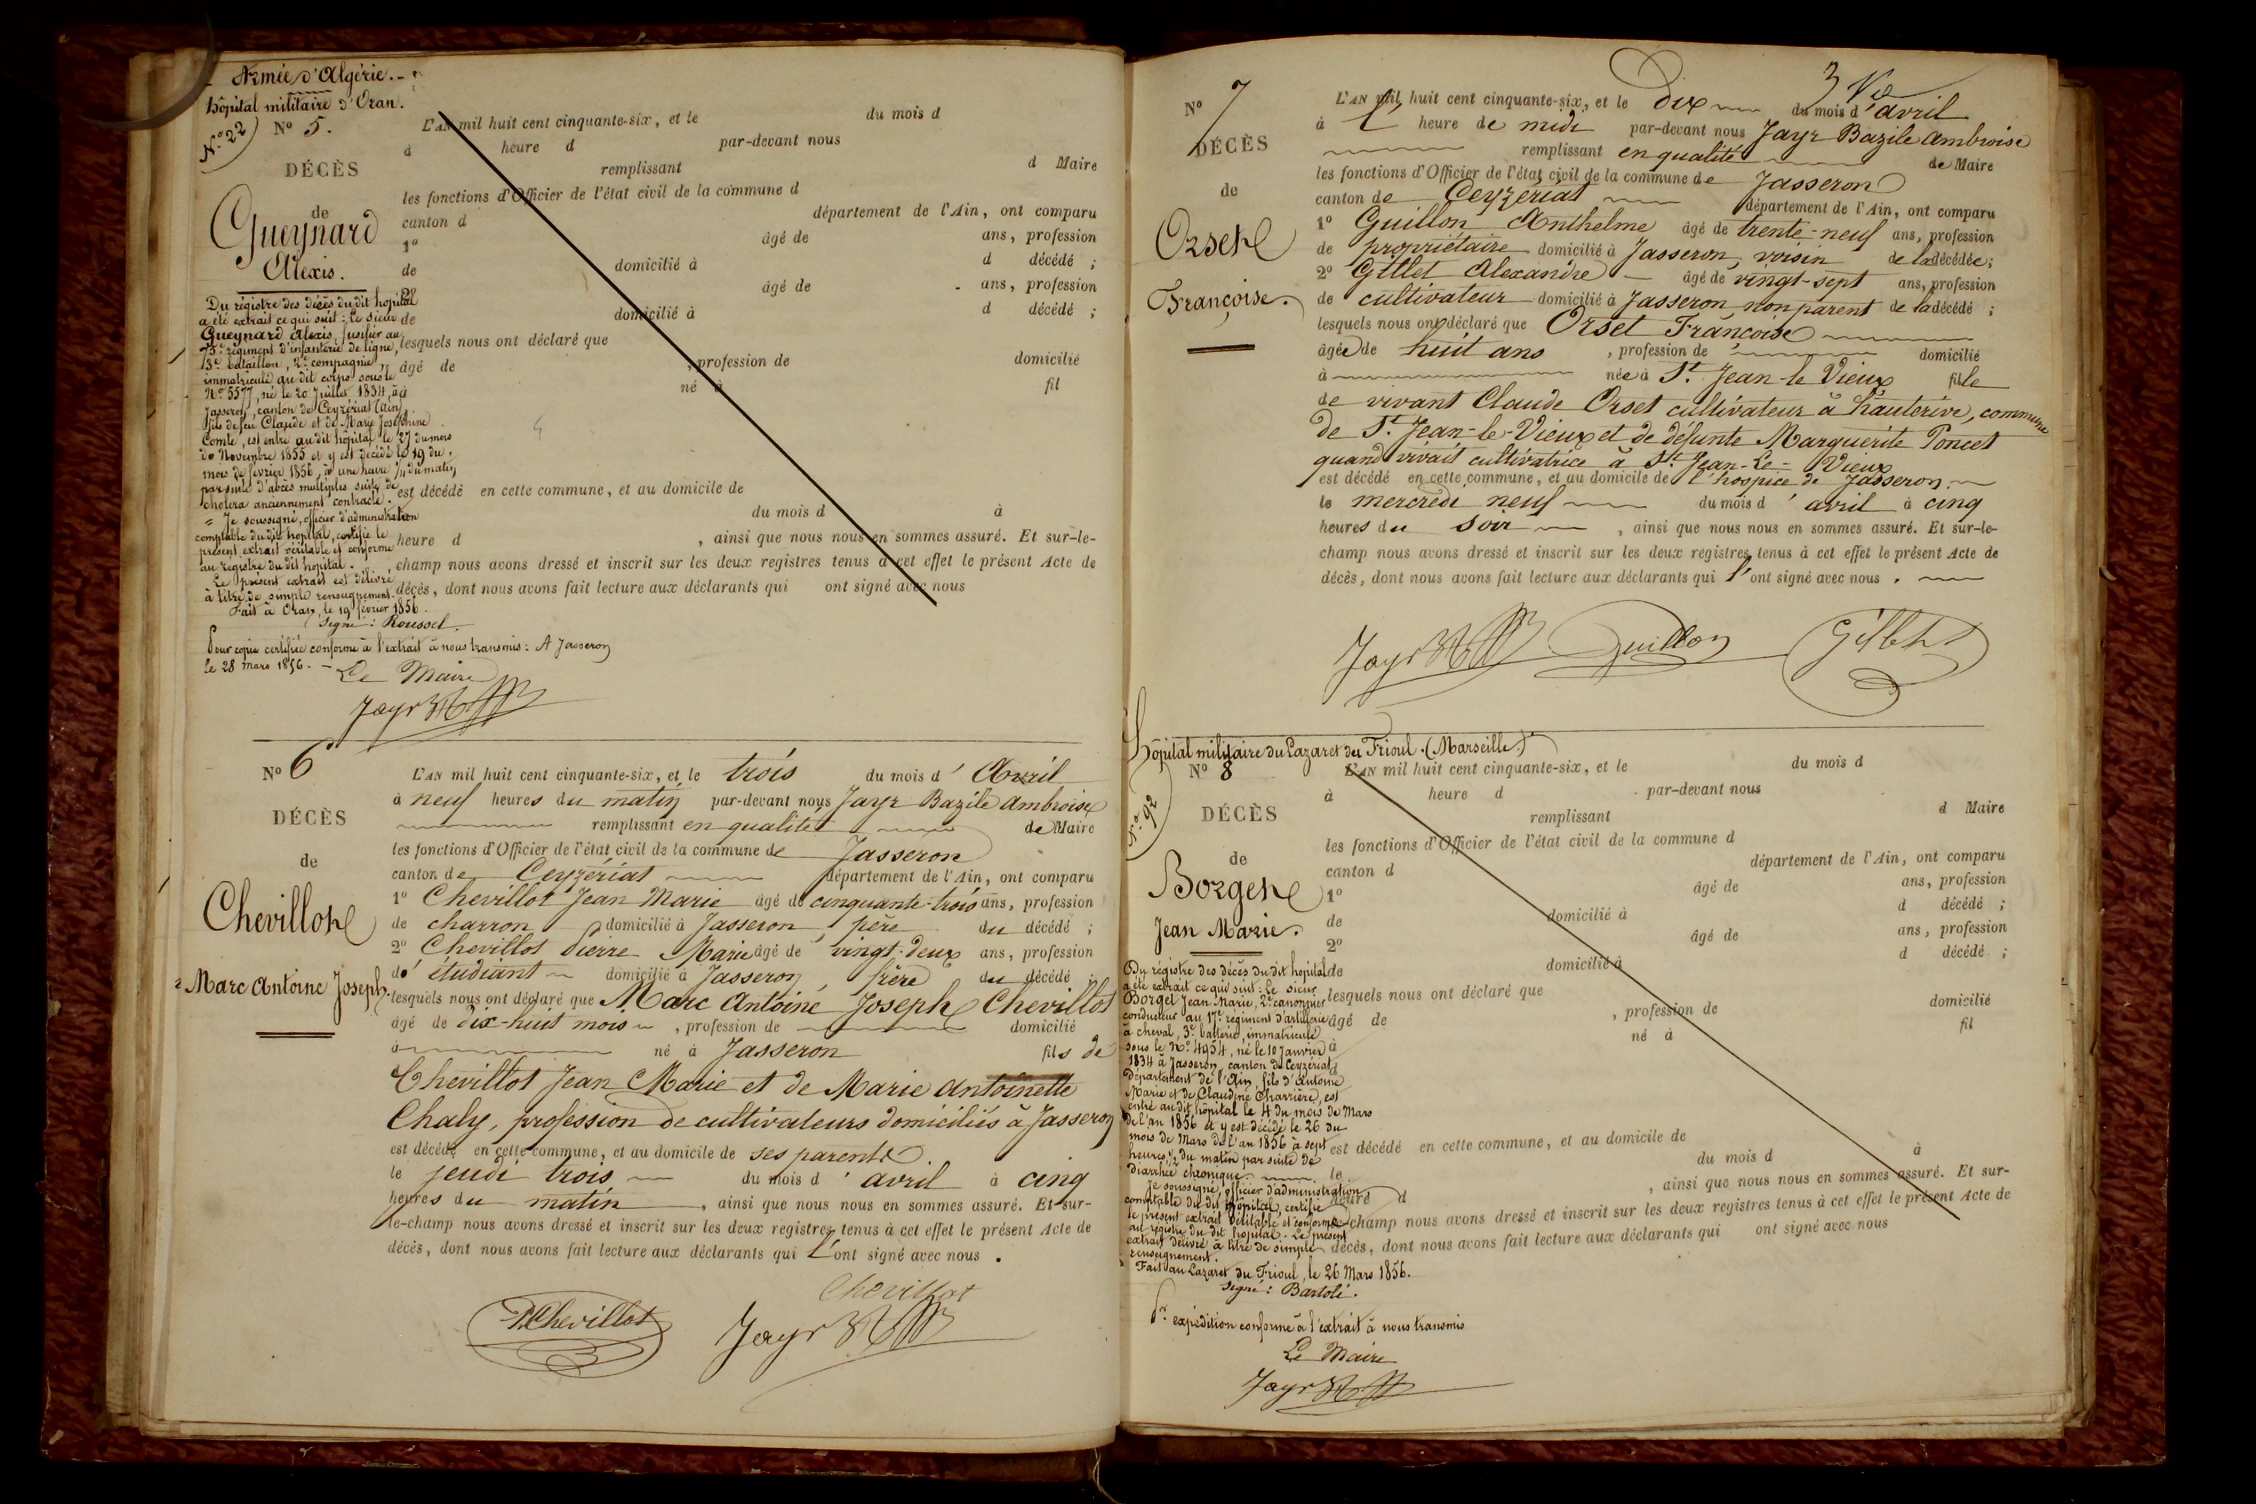 Armée d'Algérie.
hôpital militaire d'Oran.
N° 22
N° 5.
DÉCÈS
de
Gueynard
Alexis.
Du régistre des décès du dit hôpital
a été extrait ce qui suit : Le sieur
Gueynard Alexis, fusilier au
75e régiment d'infanterie de ligne,
3e bataillon, 2e compagnie,
immatriculé au dit corps sous le
N° 5577, né le 20 Juillet 1834, à
Jasseron, canton de Ceyzériat (Ain)
fils de feu Claude et de Marie Joséphine
Comte, est entré au dit hôpital le 27 du mois
de Novembre 1855 et y est décédé le 19 du
mois de février 1856, à une heure du matin
par suite d'abcès multiples suite de
choléra anciennement contracté.
= Je soussigné, officier d'administration
comptable du dit hôpital, certifie le
présent extrait véritable et conforme
au régistre du dit hôpital.
Le présent extrait est délivré
à titre de simple renseignement.
Fait à Oran, le 19 février 1856.
Signé : Roussel.
Pour copie certifiée conforme à l'extrait à nous transmis : A Jasseron
le 28 mars 1856. - Le Maire
Jayr
L'AN mil huit cent cinquante-six, et le du mois d
à heure d par-devant nous
remplissant d Maire
les fonctions d'Officier de l'état civil de la commune d
canton d département de l'Ain, ont comparu
1° âgé de ans, profession
de domicilié à d décédé ;
2° âgé de ans, profession
de domicilié à d décédé ;
lesquels nous ont déclaré que
âgé de , profession de domicilié
à né à fil
est décédé en cette commune, et au domicile de
le du mois d à
heure d , ainsi que nous nous en sommes assuré. Et sur-le-
champ nous avons dressé et inscrit sur les deux registres tenus à cet effet le présent Acte de
décès, dont nous avons fait lecture aux déclarants qui ont signé avec nous
N° 6
DÉCÈS
de
Chevillot
Marc Antoine Joseph.
L'AN mil huit cent cinquante-six, et le trois du mois d'Avril
à neuf heures du matin par-devant nous Jayr Bazile Ambroise
remplissant en qualité de Maire
les fonctions d'Officier de l'état civil de la commune de Jasseron
canton de Ceyzériat département de l'Ain, ont comparu
1° Chevillot Jean Marie âgé de cinquante-trois ans, profession
de charron domicilié à Jasseron, père du décédé ;
2° Chevillot Pierre Marie âgé de vingt-deux ans, profession
d'étudiant domicilié à Jasseron, frère du décédé ;
lesquels nous ont déclaré que Marc Antoine Joseph Chevillot
âgé de dix-huit mois, profession de domicilié
à né à Jasseron fils de
Chevillot Jean Marie et de Marie Antoinette
Chaly, profession de cultivateurs domiciliés à Jasseron
est décédé en cette commune, et au domicile de ses parents
le jeudi trois du mois d'avril à cinq
heures du matin, ainsi que nous nous en sommes assuré. Et sur-
le-champ nous avons dressé et inscrit sur les deux registres tenus à cet effet le présent Acte de
décès, dont nous avons fait lecture aux déclarants qui l'ont signé avec nous.
Chevillot
P. Chevillot Jayr
3
N° 7
DÉCÈS
de
Orset
Françoise.
L'AN mil huit cent cinquante-six, et le dix du mois d'avril
à heure de midi par-devant nous Jayr Bazile Ambroise
remplissant en qualité de Maire
les fonctions d'Officier de l'état civil de la commune de Jasseron
canton de Ceyzériat département de l'Ain, ont comparu
1° Guillon Anthelme âgé de trente-neuf ans, profession
de propriétaire domicilié à Jasseron, voisin de la décédée ;
2° Gillet Alexandre âgé de vingt-sept ans, profession
de cultivateur domicilié à Jasseron, non parent de la décédé ;
lesquels nous ont déclaré que Orset Françoise
âgée de huit ans, profession de domicilié
à née à St Jean-le-Vieux fille
de vivant Claude Orset cultivateur à hauterive, commune
de St Jean-le-Vieux et de défunte Marguerite Poncet
quand vivait cultivatrice à St Jean-Le-Vieux
est décédé en cette commune, et au domicile de l'hospice de Jasseron
le mercredi neuf du mois d'avril à cinq
heures du soir, ainsi que nous nous en sommes assuré. Et sur-le-
champ nous avons dressé et inscrit sur les deux registres tenus à cet effet le présent Acte de
décès, dont nous avons fait lecture aux déclarants qui l'ont signé avec nous.
Jayr Guillon Gillet
hôpital militaire du Lazaret du Frioul. (Marseille)
N° 8
N° 92
DÉCÈS
de
Borget
Jean Marie.
Du régistre des décès du dit hôpital
a été extrait ce qui suit : le sieur
Borget Jean Marie, 2e canonnier
conducteur au 17e régiment d'artillerie
à cheval, 3e batterie, immatriculé
sous le N° 4954, né le 10 Janvier
1834 à Jasseron, canton de Ceyzériat,
département de l'Ain, fils d'Antoine
Marie et de Claudine Charrière, est
entré au dit hôpital le 4 du mois de Mars
de l'an 1856 et y est décédé le 26 du
mois de Mars de l'an 1856 à sept
heures 1/2 du matin par suite de
diarrhée chronique.
Je soussigné, officier d'administration
comptable du dit hôpital, certifie
le présent extrait véritable et conforme
au régistre du dit hôpital. Le présent
extrait délivré à titre de simple
renseignement.
Fait au Lazaret du Frioul, le 26 Mars 1856.
Signé : Bartoli.
Pr expédition conforme à l'extrait à nous transmis
Le Maire
Jayr
L'AN mil huit cent cinquante-six, et le du mois d
à heure d par-devant nous
remplissant d Maire
les fonctions d'Officier de l'état civil de la commune d
canton d département de l'Ain, ont comparu
1° âgé de ans, profession
de domicilié à d décédé ;
2° âgé de ans, profession
de domicilié à d décédé ;
lesquels nous ont déclaré que
âgé de , profession de domicilié
à né à fil
est décédé en cette commune, et au domicile de
le du mois d à
heure d , ainsi que nous nous en sommes assuré. Et sur-
le-champ nous avons dressé et inscrit sur les deux registres tenus à cet effet le présent Acte de
décès, dont nous avons fait lecture aux déclarants qui ont signé avec nous